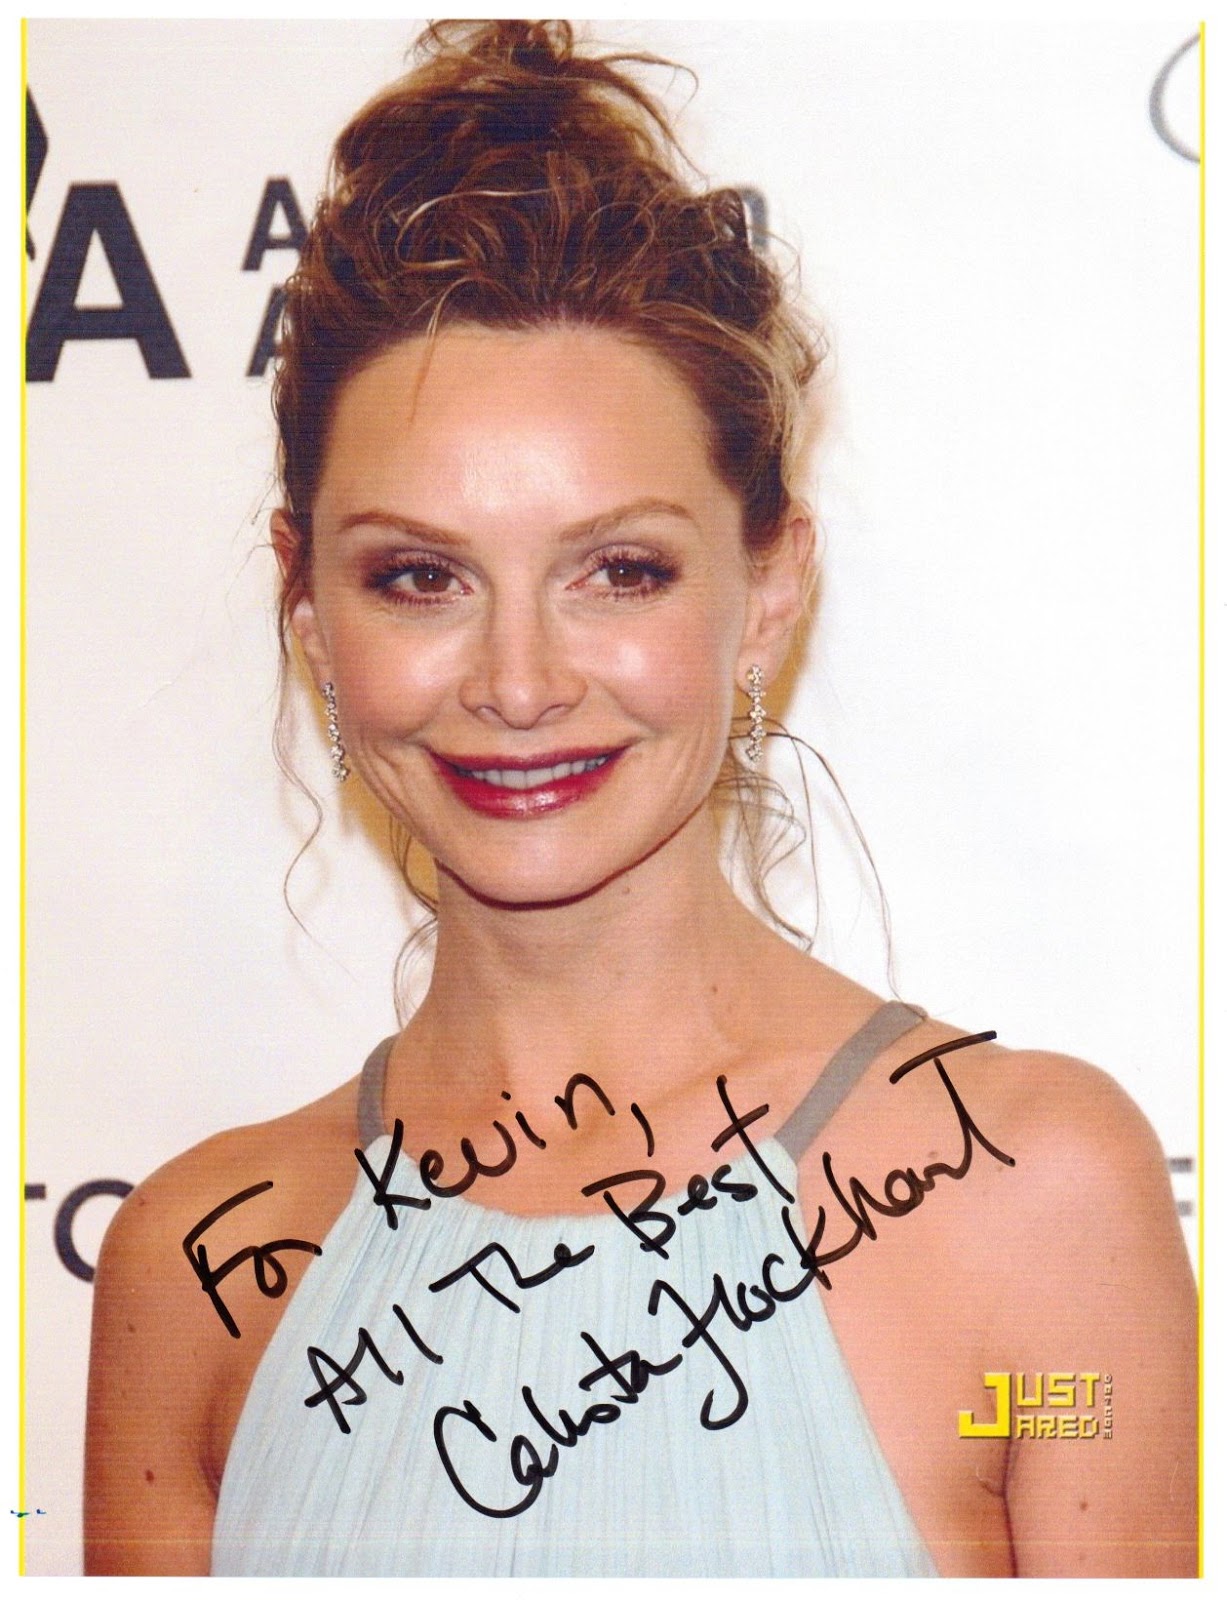 A
A
For Kevin,
All The Best
Calista Flockhart
JUST
JARED